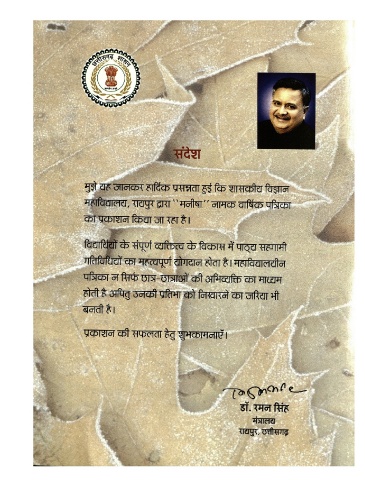 छत्तीसगढ़ शासन
संदेश
मुझे यह जानकर हार्दिक प्रसन्नता हुई कि शासकीय विज्ञान
महाविद्यालय, रायपुर द्वारा ''मनीषा'' नामक वार्षिक पत्रिका
का प्रकाशन किया जा रहा है।
विद्यार्थियों के संपूर्ण व्यक्तित्व के विकास में पाठ्य सहगामी
गतिविधियों का महत्वपूर्ण योगदान होता है। महाविद्यालयीन
पत्रिका न सिर्फ छात्र-छात्राओं की अभिव्यक्ति का माध्यम
होती है अपितु उनकी प्रतिभा को निखारने का जरिया भी
बनती है।
प्रकाशन की सफलता हेतु शुभकामनाएँ।
डॉ. रमन सिंह
मंत्रालय
रायपुर, छत्तीसगढ़